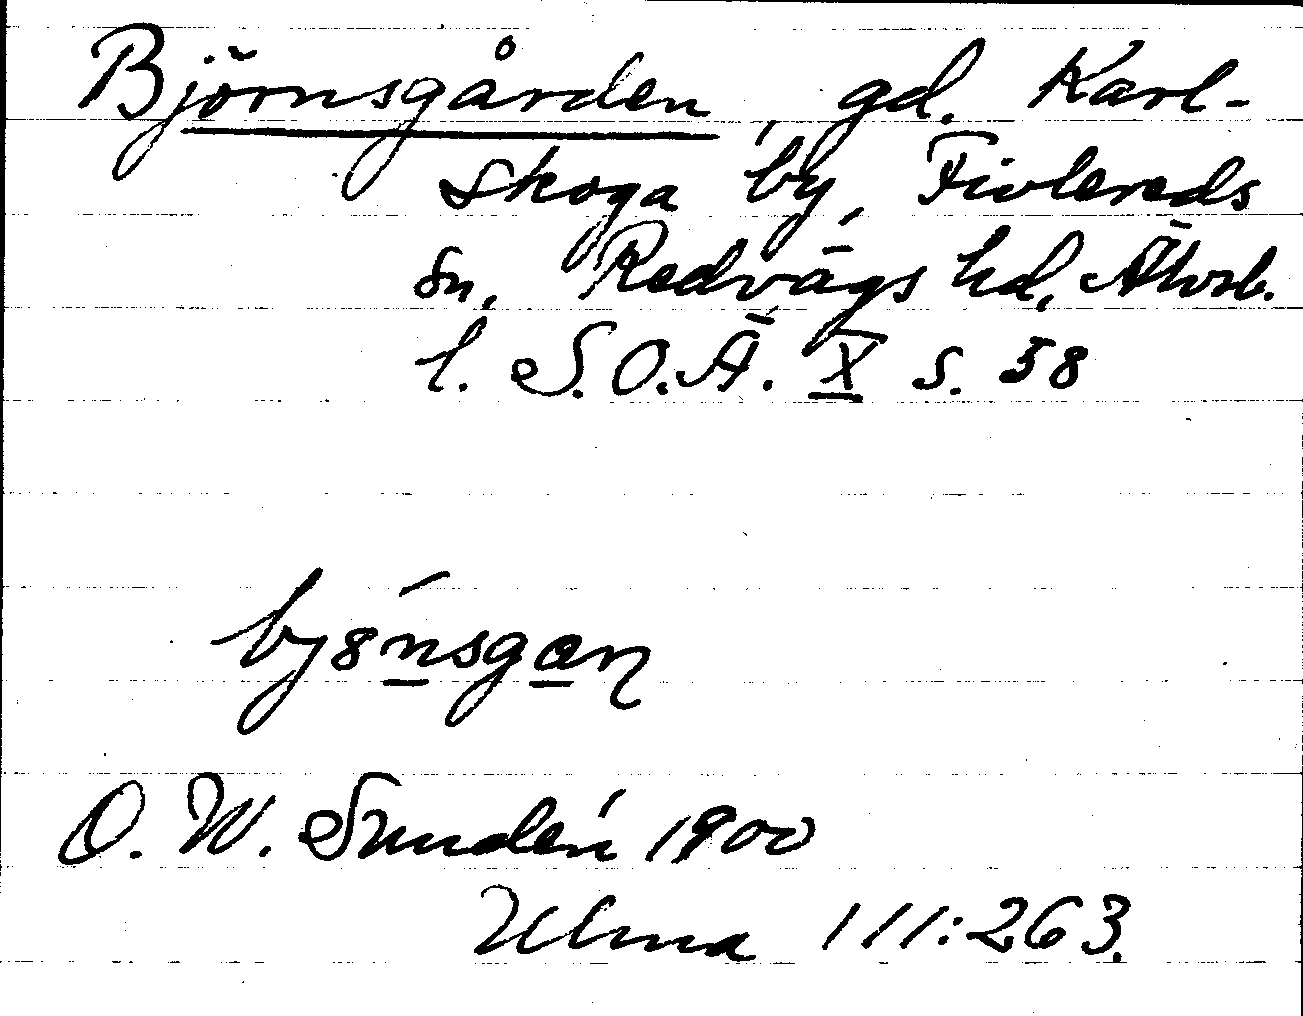 Björnsgården, gd. Karl-
skoga by, Fivlereds
sn, Redvägs hd, Älvsb.
l. S.O.Ä. X s. 58
O. W. Sundén 1900
Ulma 111:263.